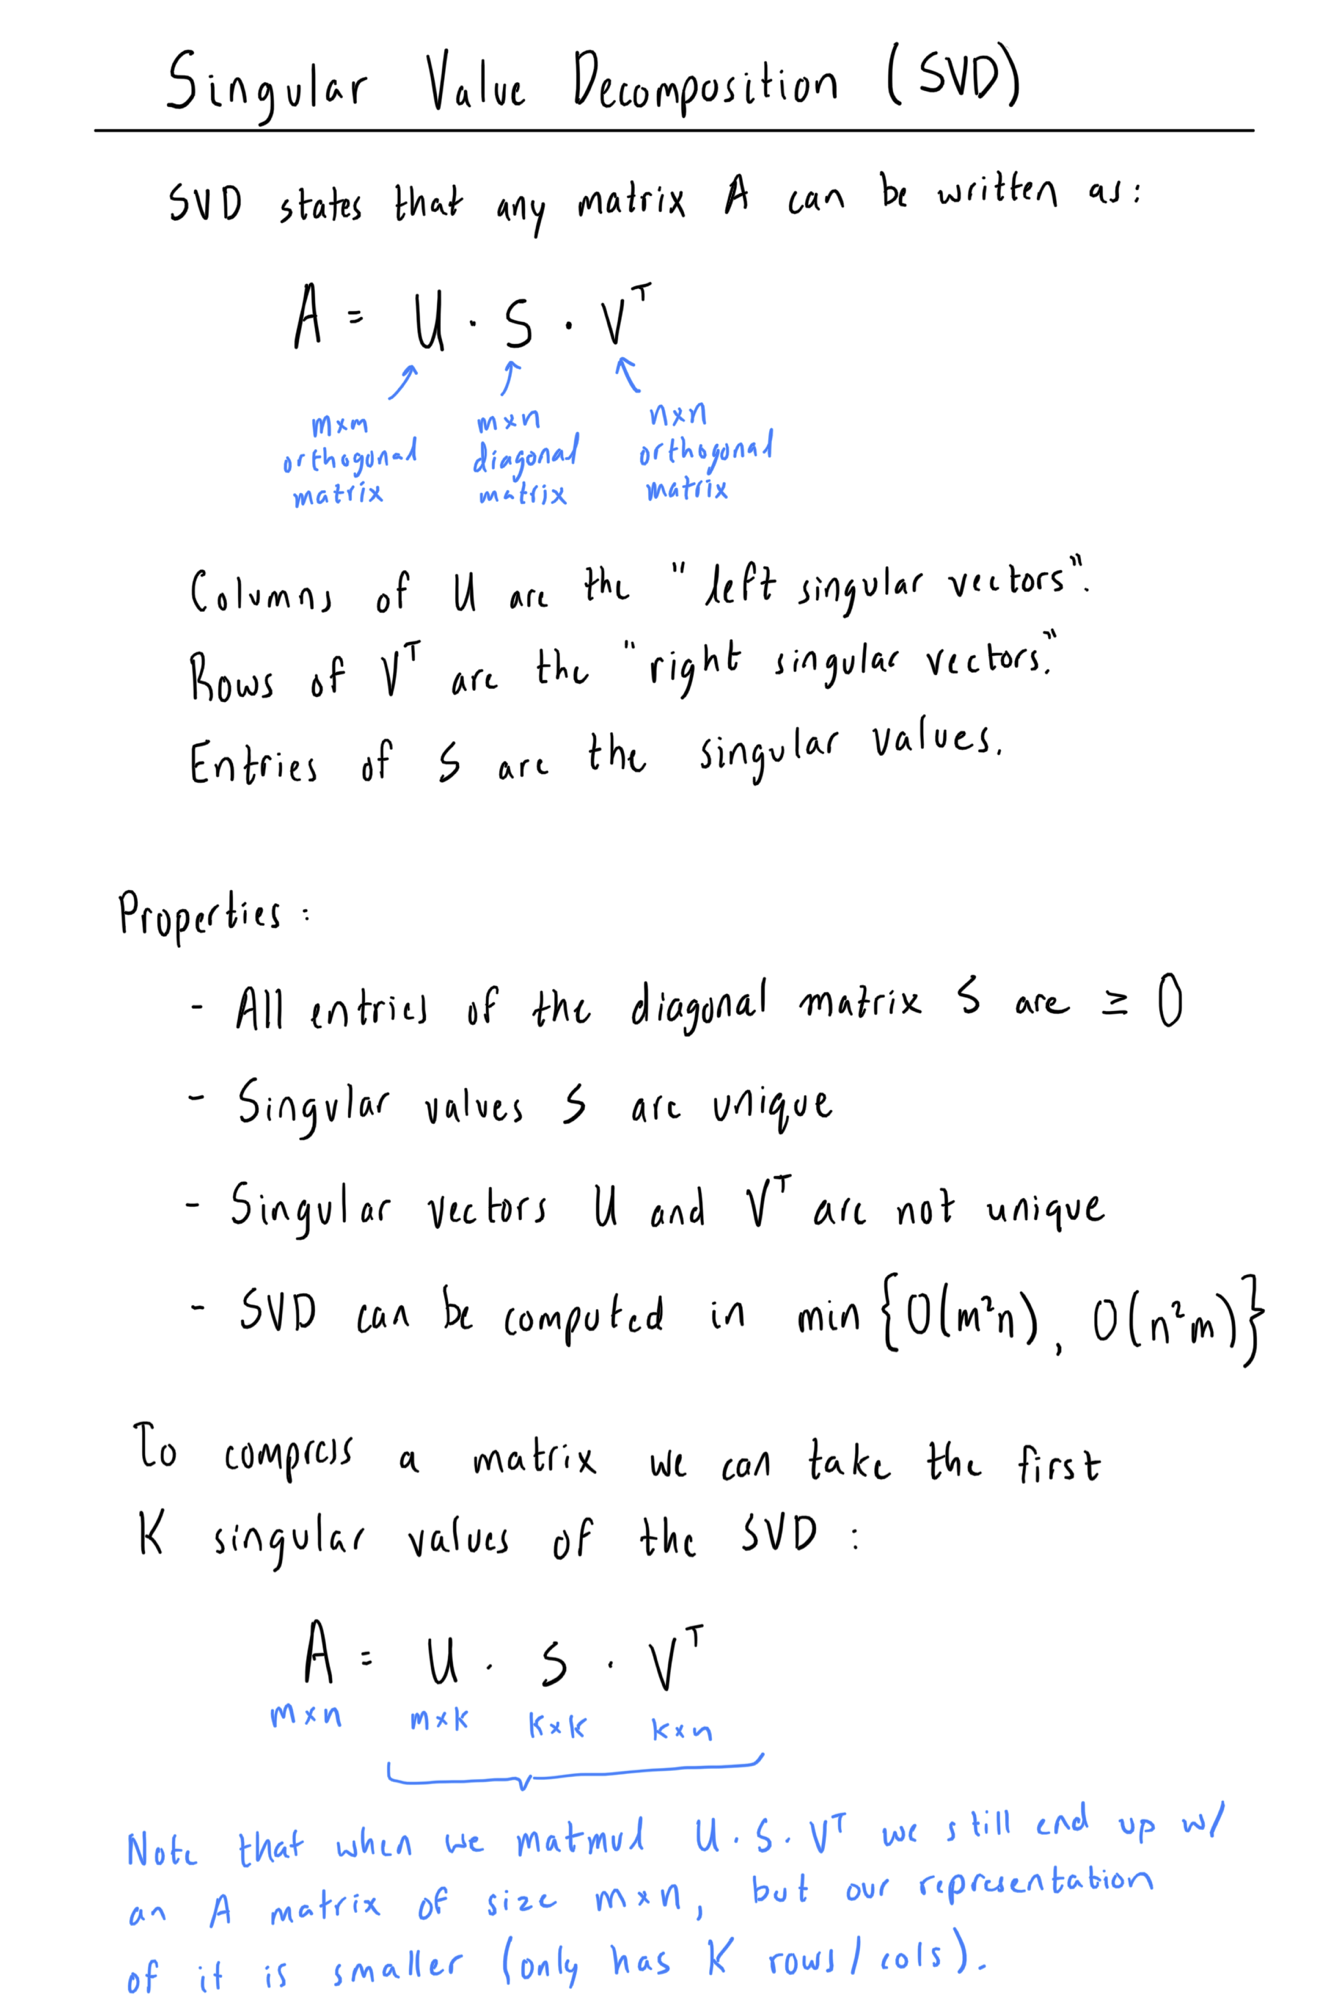 Singular Value Decomposition (SVD)
SVD states that any matrix A can be written as:
A = U · S · Vᵀ
m×m orthogonal matrix
m×n diagonal matrix
n×n orthogonal matrix
Columns of U are the "left singular vectors".
Rows of Vᵀ are the "right singular vectors."
Entries of S are the singular values.
Properties:
- All entries of the diagonal matrix S are ≥ 0
- Singular values S are unique
- Singular vectors U and Vᵀ are not unique
- SVD can be computed in min {O(m²n), O(n²m)}
To compress a matrix we can take the first
K singular values of the SVD:
A = U · S · Vᵀ
m×n m×k k×k k×n
Note that when we matmul U·S·Vᵀ we still end up w/
an A matrix of size m×n, but our representation
of it is smaller (only has K rows/cols).